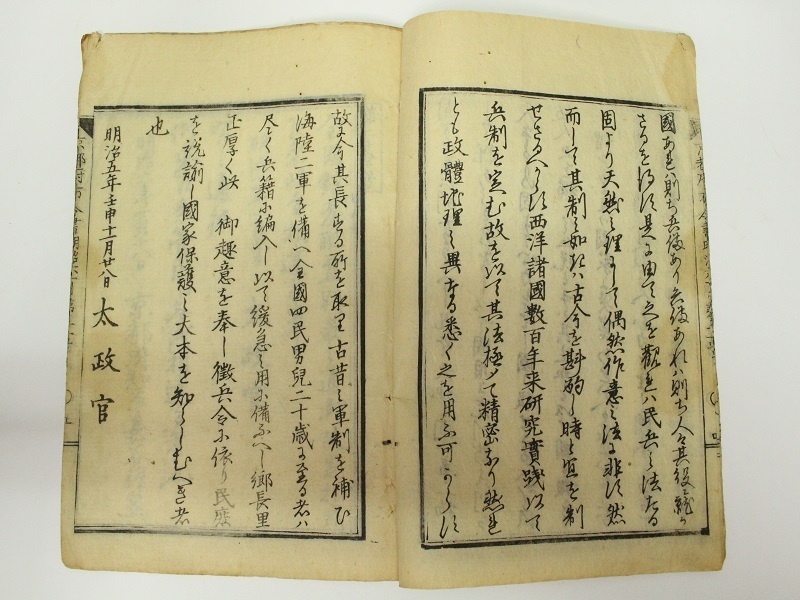 國あれハ則ち兵備あり兵備あれハ則ち人々其役に就か
さるを得す是に由て之を觀れハ民兵之法たる
固より天然之理にして偶然作意之法に非す然
而して其制之如きハ古今を斟酌し時と宜を制
せさるへからす西洋諸國數百年来研究實踐以て
兵制を定む故を以て其法極めて精密なり然れ
とも政體地理之異なる悉く之を用ふ可からす
故に今其長する所を取り古昔之軍制を補ひ
海陸二軍を備へ全國四民男兒二十歳に至る者ハ
尽く兵籍に編入し以て緩急之用に備ふへし鄉長里
正厚く此 御趣意を奉し徴兵令に依り民庶
を説諭し國家保護之大本を知らしむへき者
也
明治五年壬申十一月廿八日 太政官